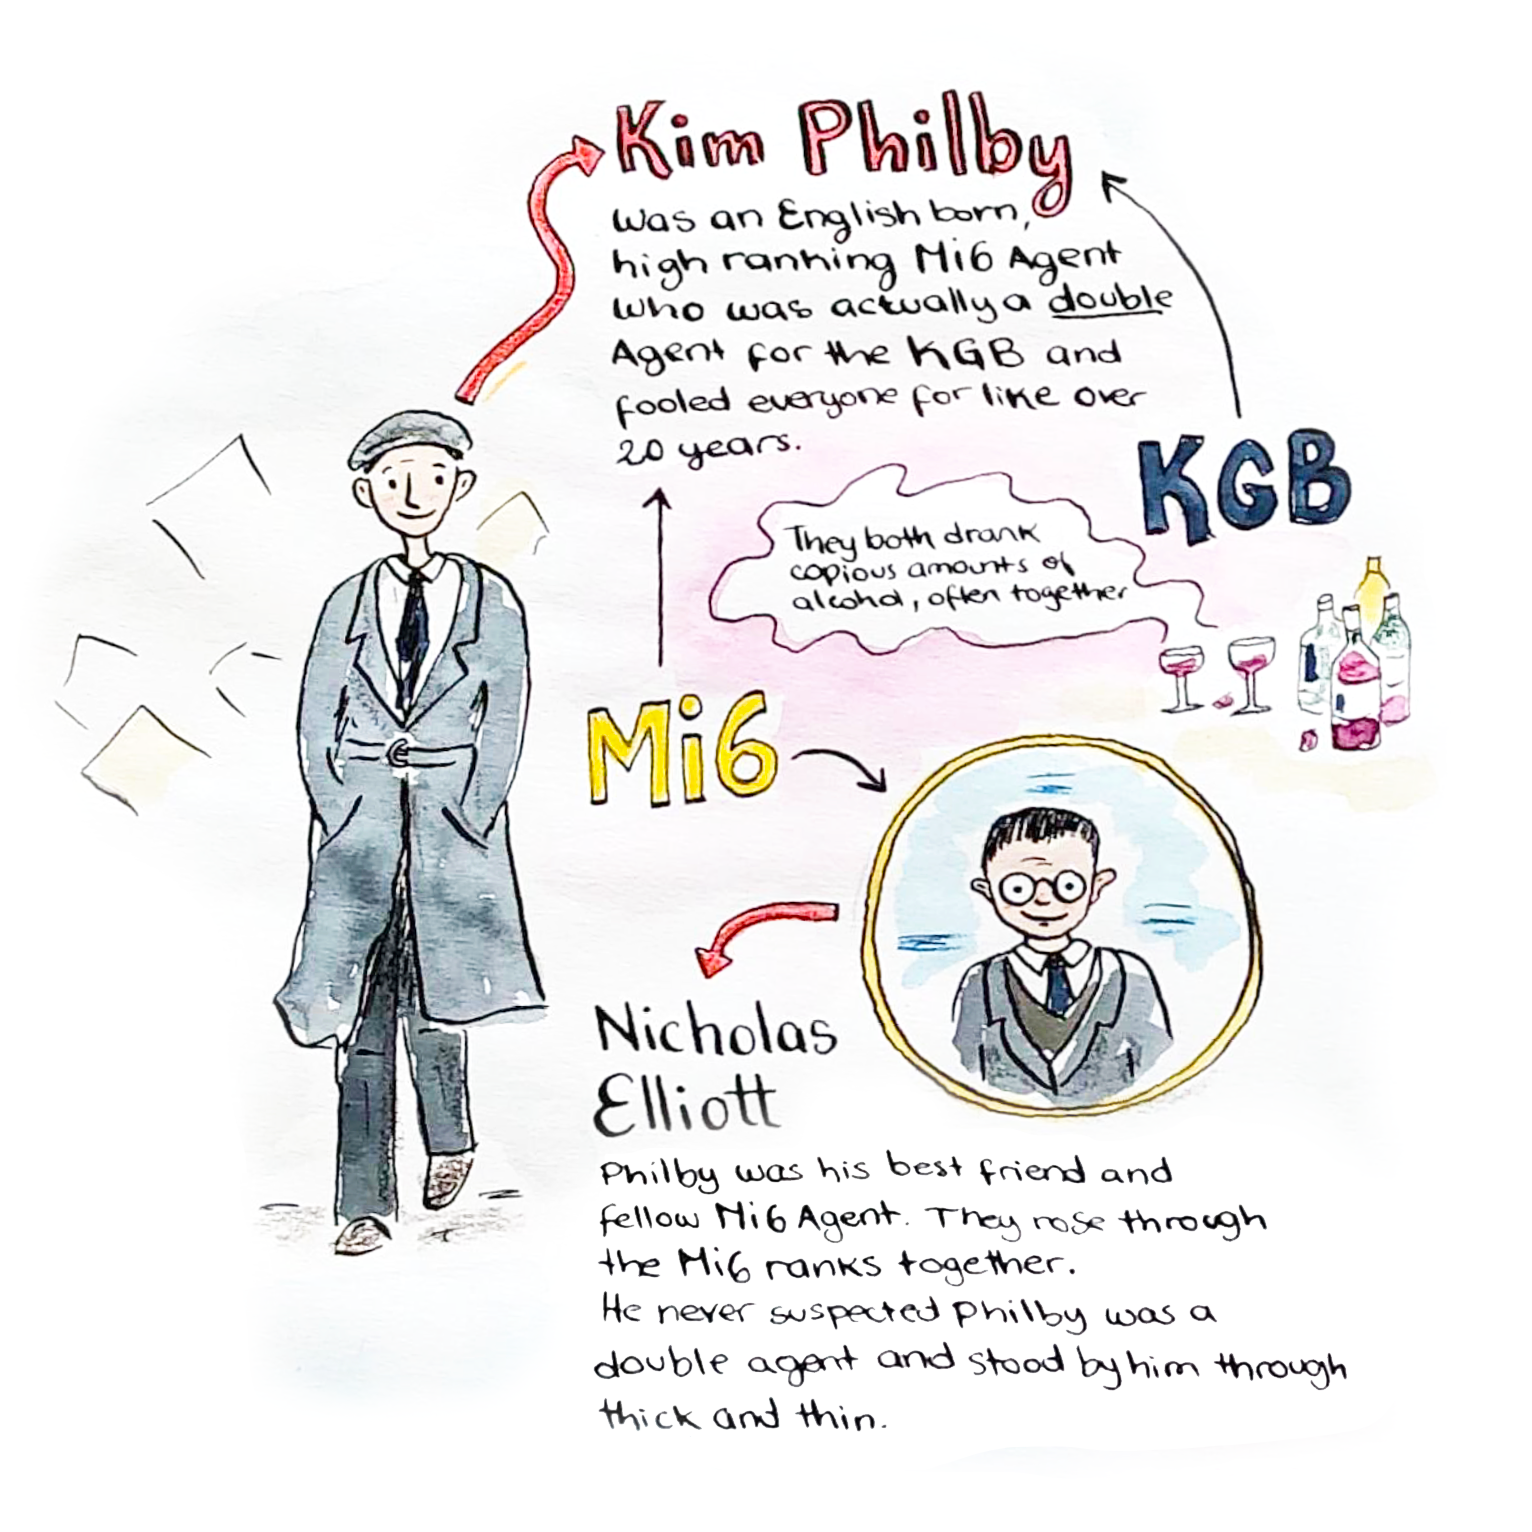 Kim Philby
was an English born,
high ranking Mi6 Agent
who was actually a double
Agent for the KGB and
fooled everyone for like over
20 years.
KGB
They both drank
copious amounts of
alcohol, often together
Mi6
Nicholas
Elliott
Philby was his best friend and
fellow Mi6 Agent. They rose through
the Mi6 ranks together.
He never suspected Philby was a
double agent and stood by him through
thick and thin.